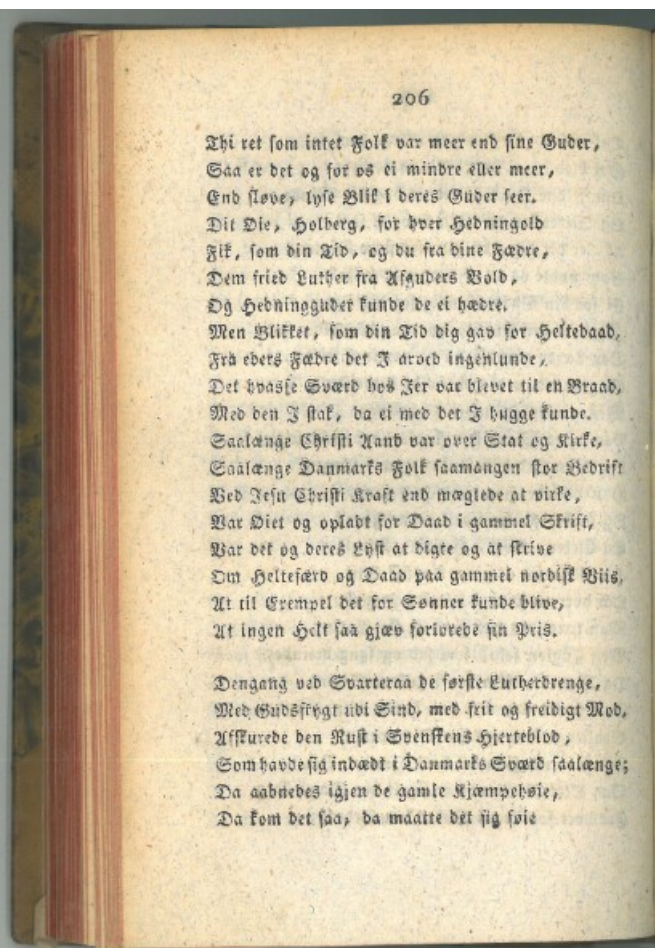 206
Thi ret som intet Folk var meer end sine Guder,
Saa er det og for os ei mindre eller meer,
End sløve, lyse Blik i deres Guder seer.
Dit Øie, Holberg, for hver Hedningold
Fik, som din Tid, og du fra dine Fædre,
Dem fried Luther fra Afguders Vold,
Og Hedningguder kunde de ei hædre.
Men Blikket, som din Tid dig gav for Heltedaad,
Fra eders Fædre det I arved ingenlunde,
Det hvasse Sværd hos Jer var blevet til en Braad,
Med den I stak, da ei med det I hugge kunde.
Saalænge Christi Aand var over Stat og Kirke,
Saalænge Danmarks Folk saamangen stor Bedrift
Ved Jesu Christi Kraft end mæglede at virke,
Var Øiet og opladt for Daad i gammel Skrift,
Var det og deres Lyst at digte og at skrive
Om Heltefærd og Daad paa gammel nordisk Viis,
At til Exempel det for Sønner kunde blive,
At ingen Helt saa gjæv forlorede sin Pris.
Dengang ved Svarteraa de første Lutherdrenge,
Med Gudsfrygt udi Sind, med frit og freidigt Mod,
Afskurede den Rust i Svenskens Hjerteblod,
Som havde sig indædt i Danmarks Sværd saalænge;
Da aabnedes igjen de gamle Kjæmpehøie,
Da kom det saa, da maatte det sig føie